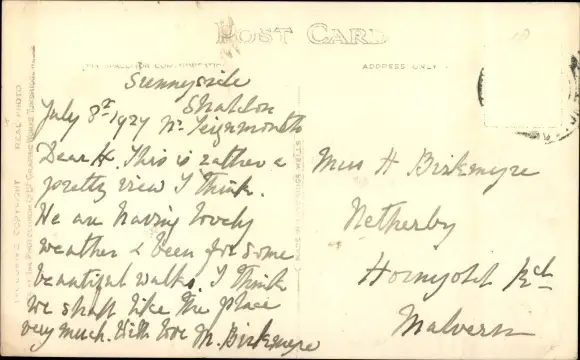 POST CARD
ADDRESS ONLY
Sunnyside
Shaldon
July 8th 1927 Nr. Teignmouth
Dear H. This is rather a
pretty view I think.
We are having lovely
weather & been for some
beautiful walks. I think
we shall like the place
very much. With love M. Birkmyre
Miss H Birkmyre
Netherby
Hornyold Rd
Malvern
REAL PHOTO